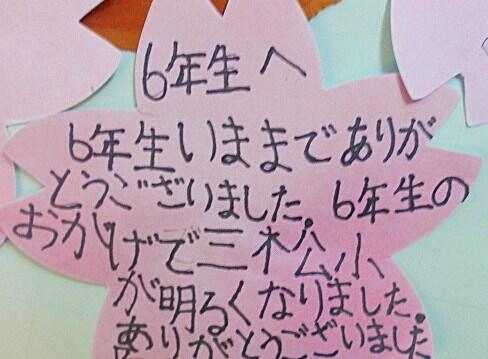 6年生へ
6年生いままでありが
とうございました。6年生の
おかげで三松小
が明るくなりました。
ありがとうございました